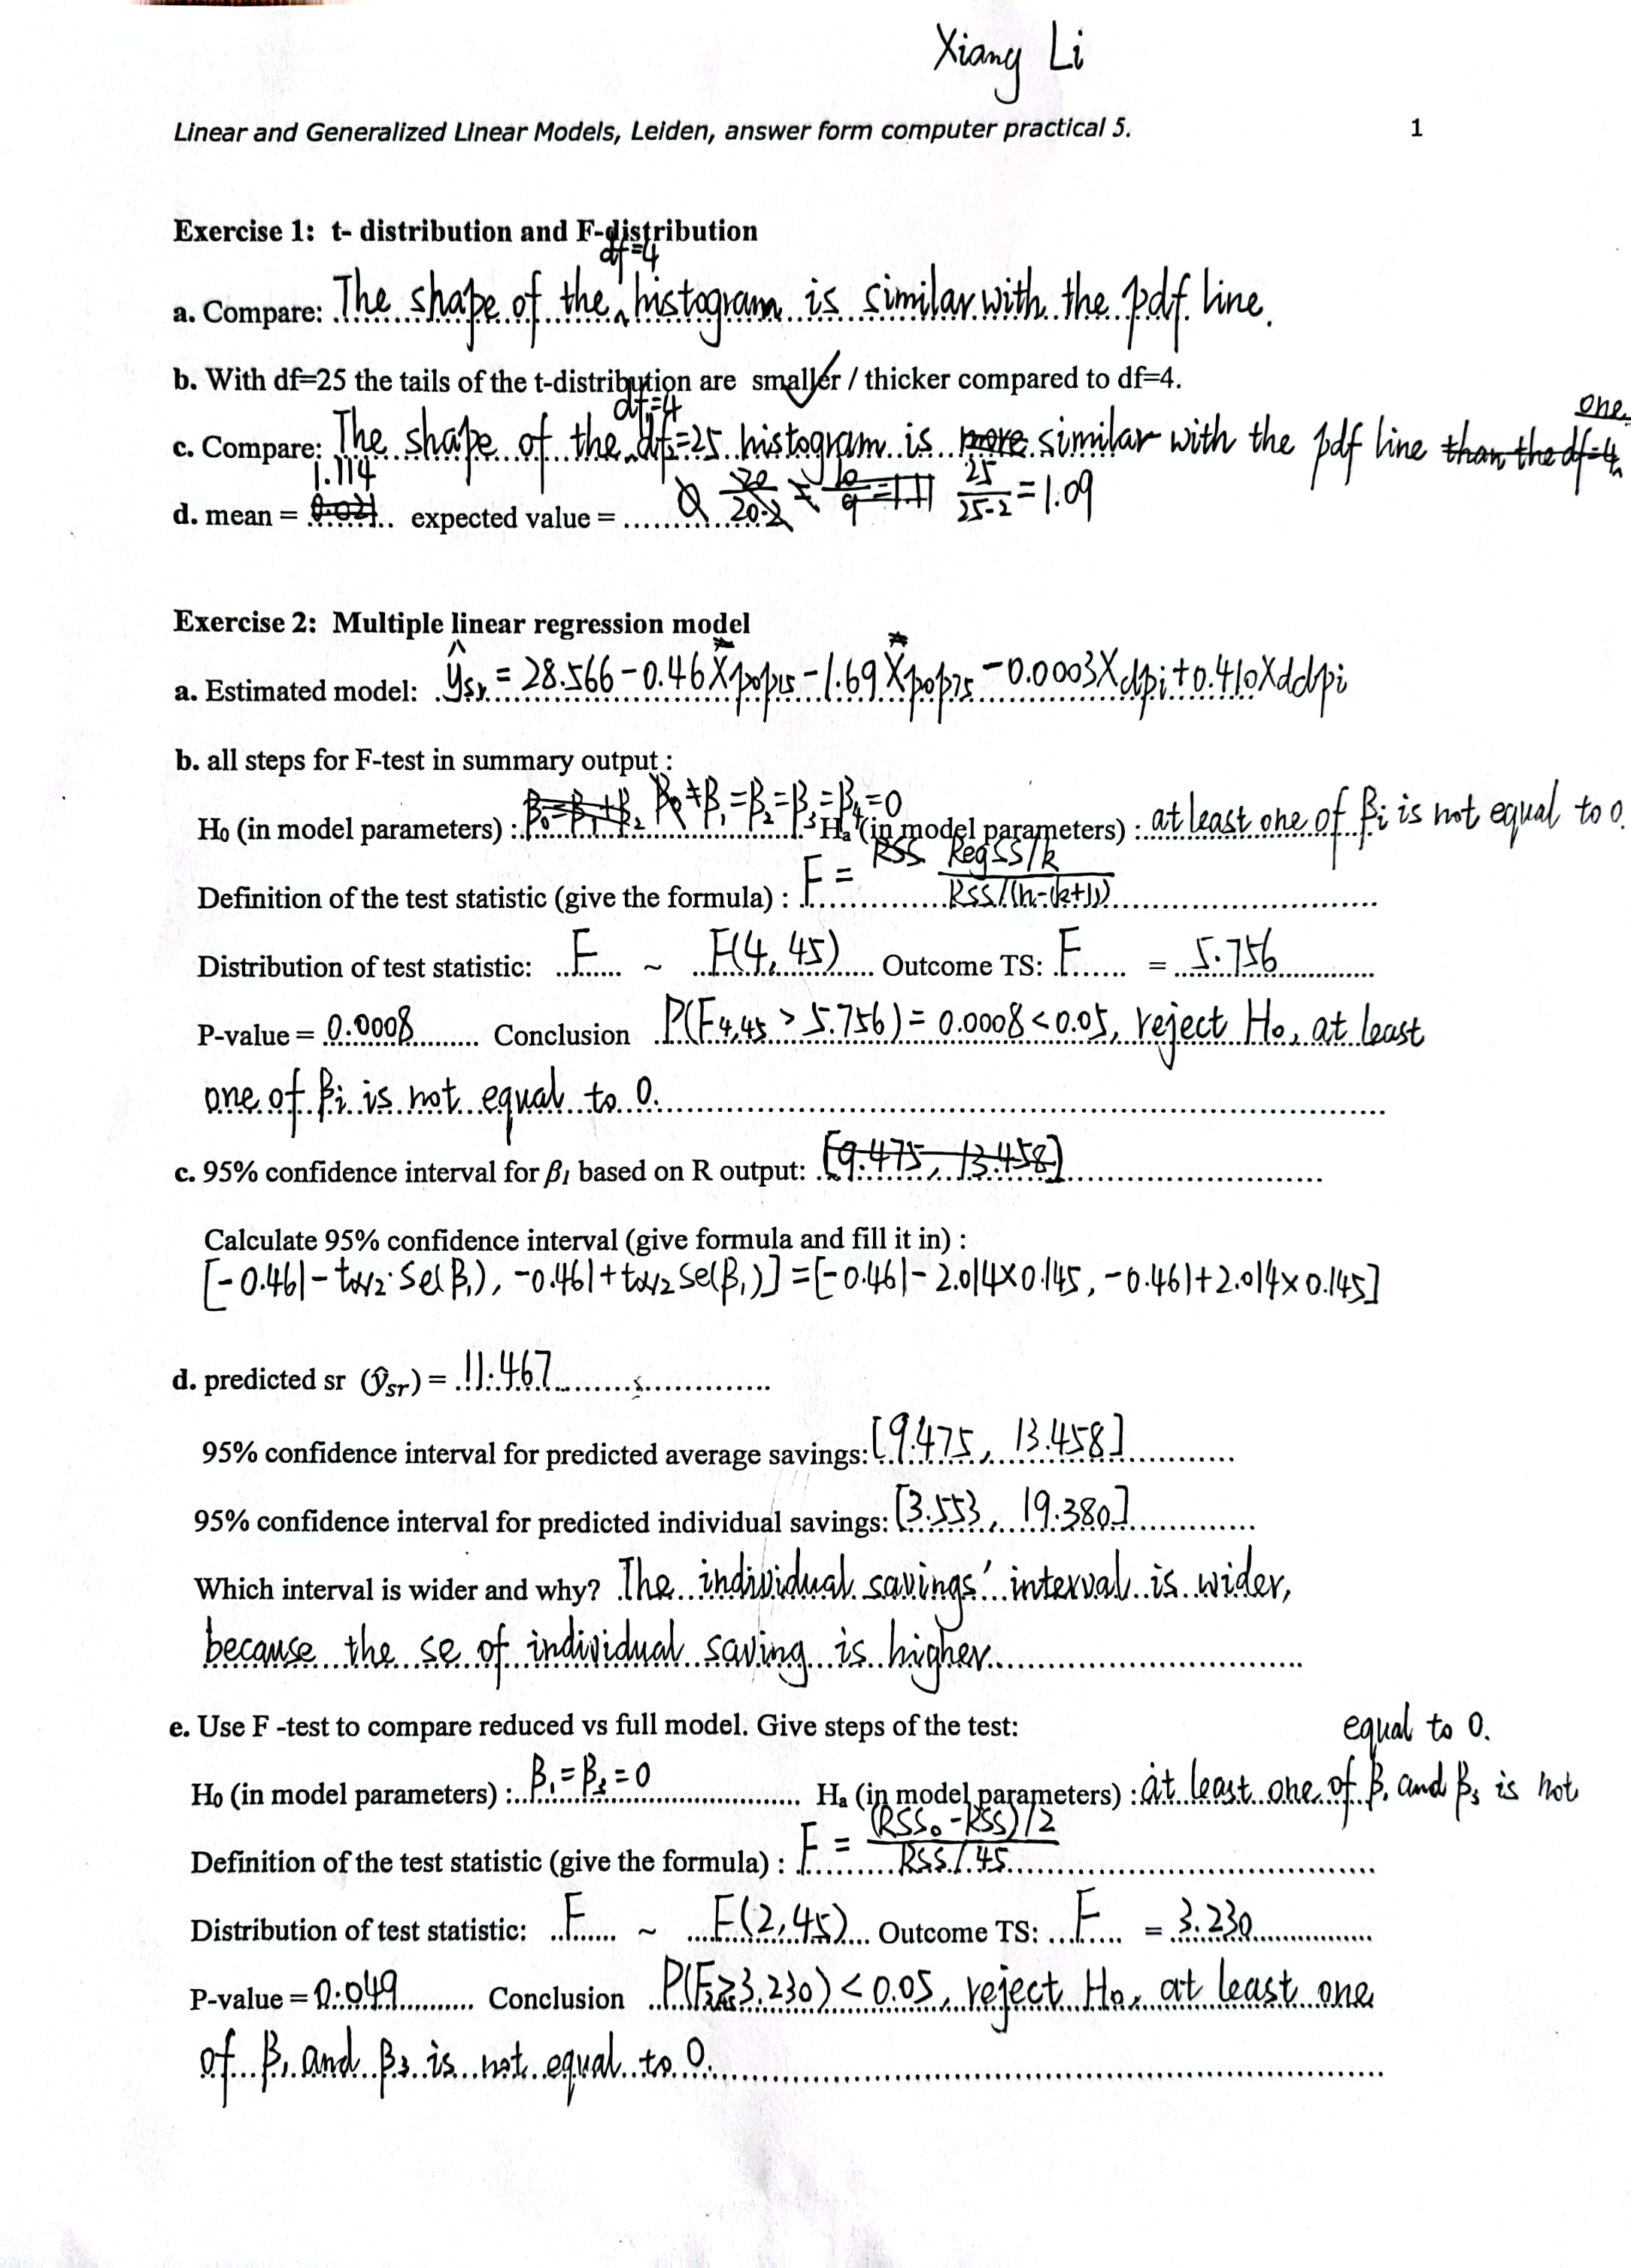 Xiang Li
Linear and Generalized Linear Models, Leiden, answer form computer practical 5. 1
Exercise 1: t- distribution and F-distribution
df=4
a. Compare: The shape of the histogram is similar with the pdf line.
b. With df=25 the tails of the t-distribution are smaller / thicker compared to df=4.
df1=4 one
c. Compare: The shape of the df2=25 histogram is more similar with the pdf line than the df=4
1.114
d. mean = 0.021 expected value = 20/20-2 = 10/9 = 1.11 25/25-2 = 1.09
Exercise 2: Multiple linear regression model
a. Estimated model: ŷsr = 28.566-0.46Xpop15-1.69Xpop75-0.0003Xdpi+0.410Xddpi
b. all steps for F-test in summary output :
H₀ (in model parameters) : β₀≠β₁=β₂=β₃=β₄=0 Hₐ (in model parameters) : at least one of βi is not equal to 0.
Definition of the test statistic (give the formula) : F = RSS RegSS/k / RSS/(n-(k+1))
Distribution of test statistic: F ~ F(4,45) Outcome TS: F = 5.756
P-value = 0.0008 Conclusion P(F4,45 > 5.756) = 0.0008 < 0.05, reject H₀, at least
one of βi is not equal to 0.
c. 95% confidence interval for β1 based on R output: [9.475, 13.458]
Calculate 95% confidence interval (give formula and fill it in) :
[-0.461-tα/2·Se(β₁), -0.461+tα/2 Se(β₁)] = [-0.461-2.014×0.145, -0.461+2.014×0.145]
d. predicted sr (ŷsr) = 11.467
95% confidence interval for predicted average savings: [9.475, 13.458]
95% confidence interval for predicted individual savings: [3.553, 19.380]
Which interval is wider and why? The individual savings' interval is wider,
because the se of individual saving is higher.
e. Use F -test to compare reduced vs full model. Give steps of the test:
equal to 0.
H₀ (in model parameters) : β₁=β₃=0 Hₐ (in model parameters) : at least one of β₁ and β₃ is not
Definition of the test statistic (give the formula) : F = (RSS₀-RSS)/2 / RSS/45
Distribution of test statistic: F ~ F(2,45) Outcome TS: F = 3.230
P-value = 0.049 Conclusion P(F2,45≥3.230) < 0.05, reject H₀, at least one
of β₁ and β₃ is not equal to 0.